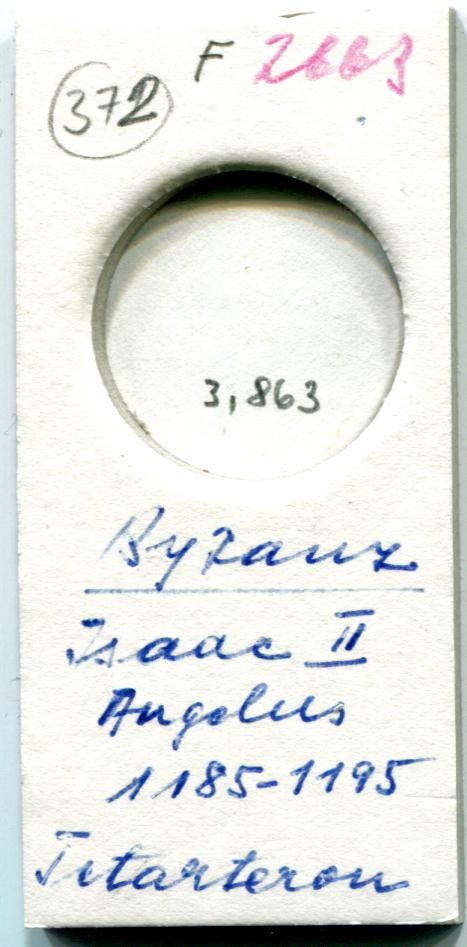 F 2663
372
3,863
Byzanz
Isaac II
Angelus
1185-1195
Tetarteron